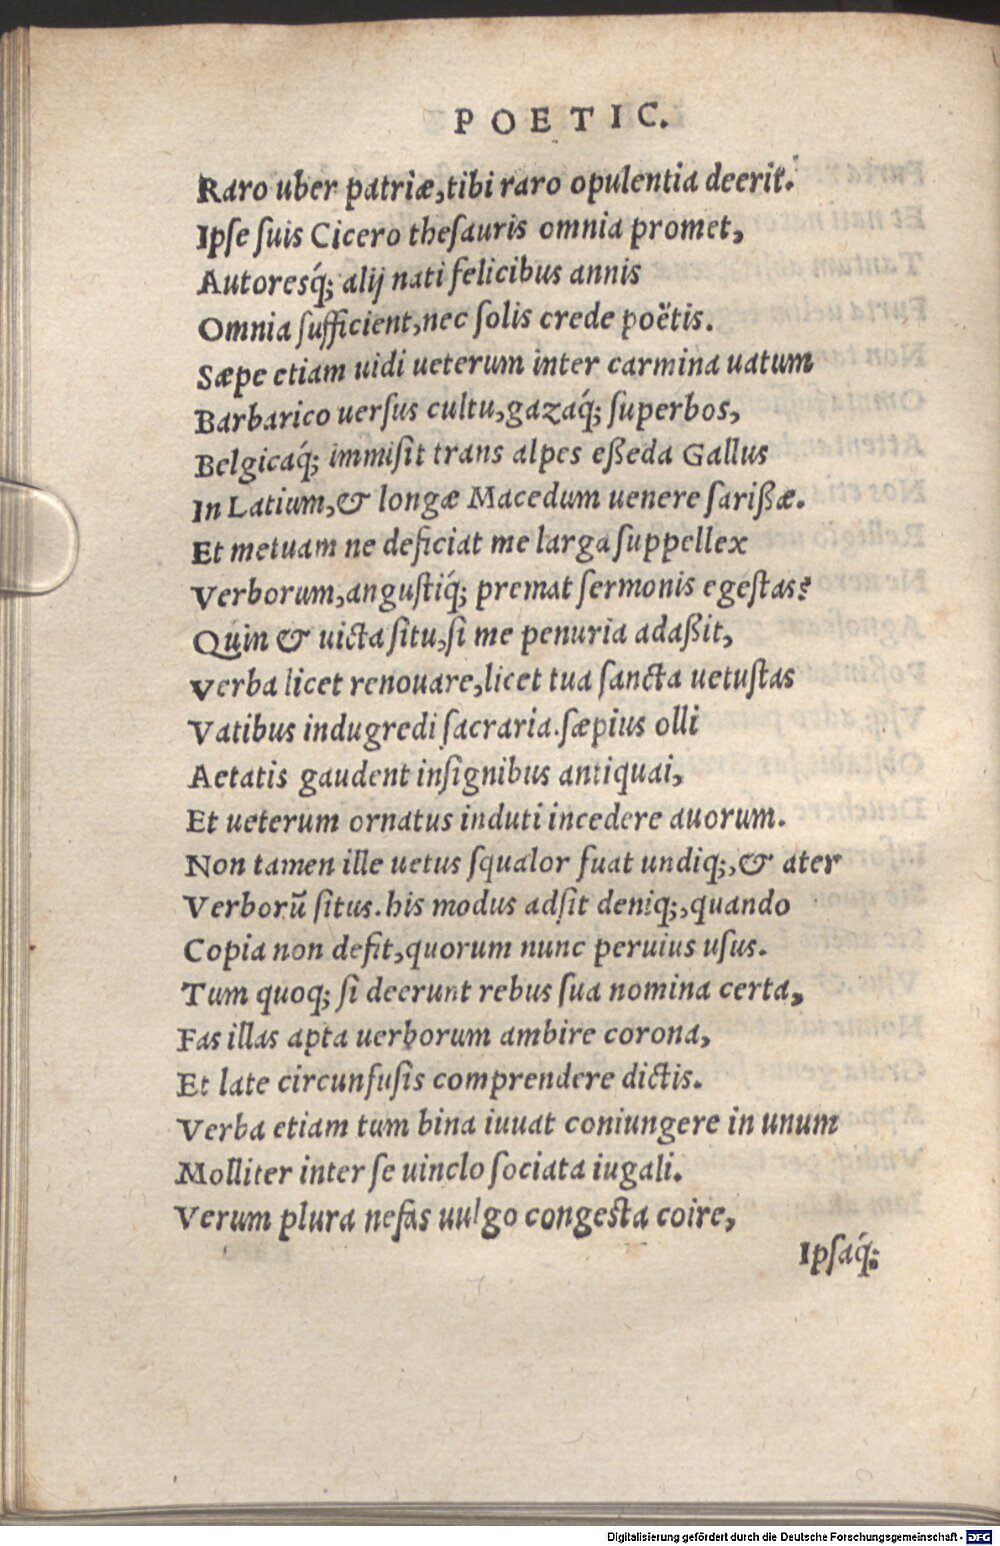 POETIC.
Raro uber patriæ, tibi raro opulentia deerit.
Ipſe ſuis Cicero theſauris omnia promet,
Autoresq́; alij nati felicibus annis
Omnia ſufficient, nec ſolis crede poëtis.
Sæpe etiam uidi ueterum inter carmina uatum
Barbarico uerſus cultu, gazaq́; ſuperbos,
Belgicaq́; immiſit trans alpes eßeda Gallus
In Latium, & longæ Macedum uenere ſarißæ.
Et metuam ne deficiat me larga ſuppellex
Verborum, anguſtiq́; premat ſermonis egeſtas?
Quin & uicta ſitu, ſi me penuria adaßit,
Verba licet renouare, licet tua ſancta uetuſtas
Vatibus indugredi ſacraria. ſæpius olli
Aetatis gaudent inſignibus antiquai,
Et ueterum ornatus induti incedere auorum.
Non tamen ille uetus ſqualor fuat undiq;, & ater
Verborũ ſitus. his modus adſit deniq;, quando
Copia non defit, quorum nunc peruius uſus.
Tum quoq; ſi deerunt rebus ſua nomina certa,
Fas illas apta uerborum ambire corona,
Et late circunfuſis comprendere dictis.
Verba etiam tum bina iuuat coniungere in unum
Molliter inter ſe uinclo ſociata iugali.
Verum plura nefas uulgo congeſta coire,
Ipſaq́;
Digitalisierung gefördert durch die Deutsche Forschungsgemeinschaft - DFG